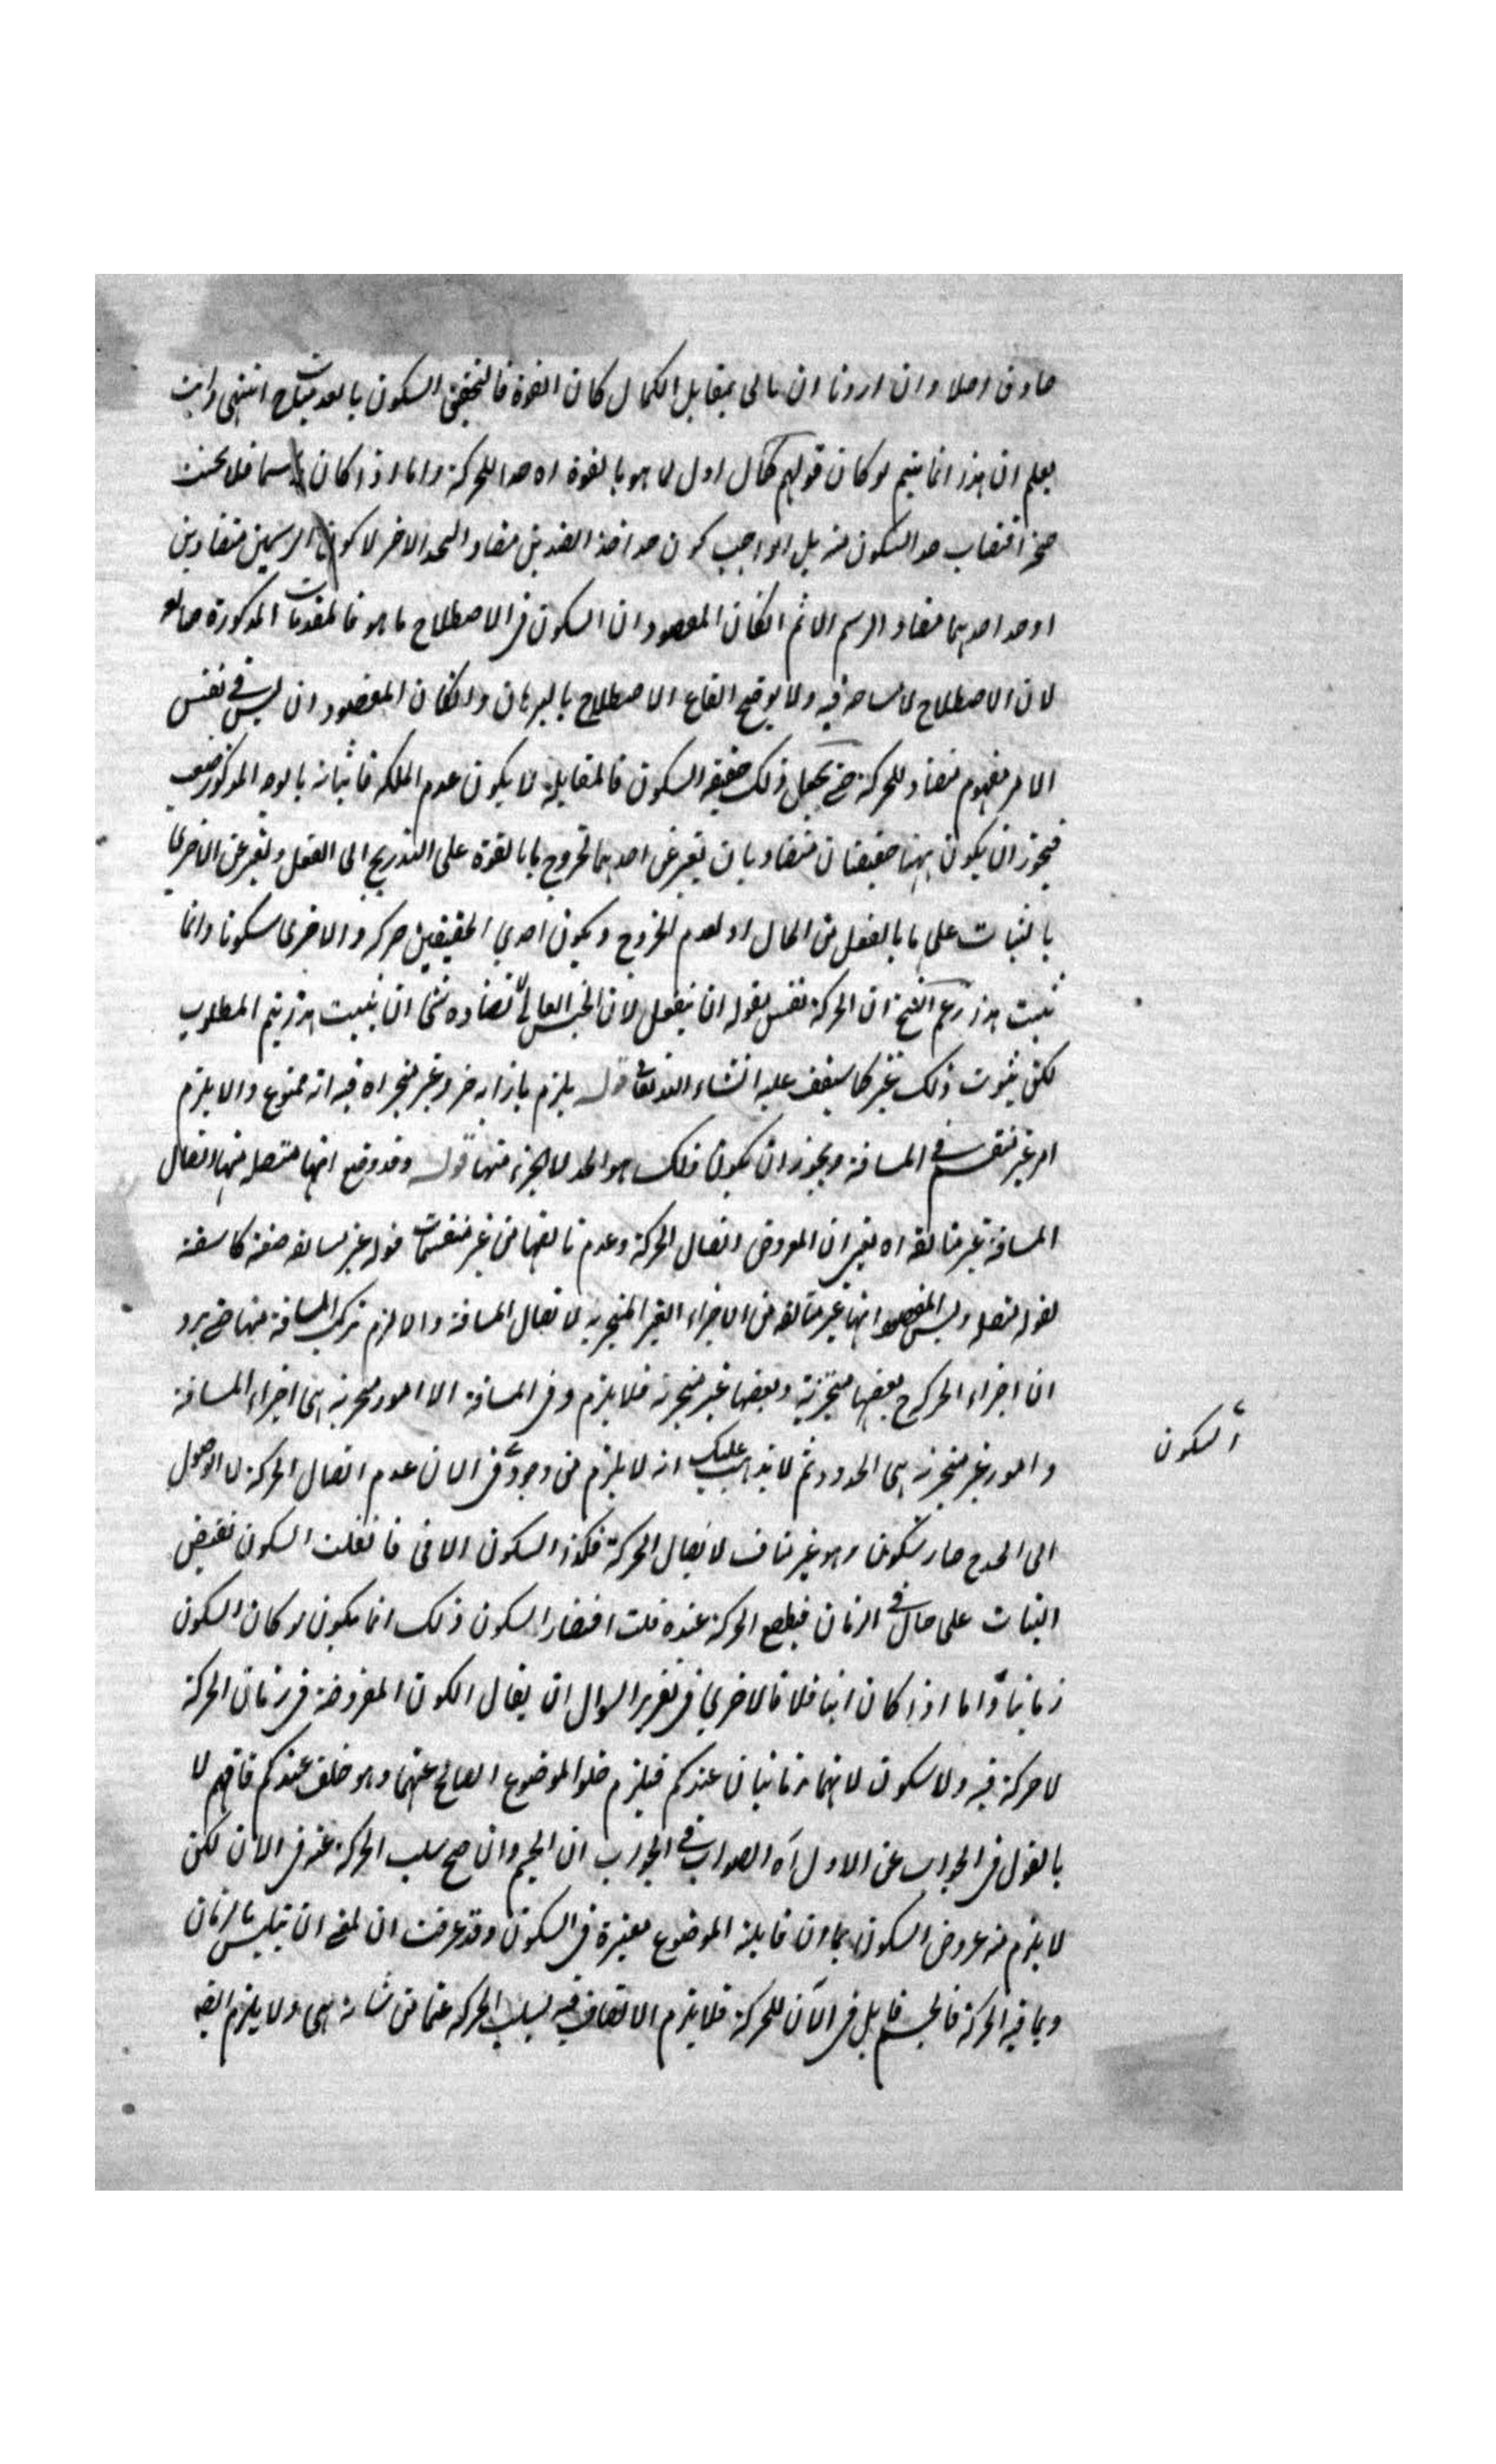 صادق اصلا وان اردنا ان ما لى بمقابل الكمال كان القوة فالتحقيق السكون بالعد انتهى وانت
تعلم ان هذا انما يتم لو كان قولهم كمال اول لما هو بالقوة اه حدا للحركة واما اذا كان رسما فلا يحسن
اقتضاب حد السكون منه بل الواجب كون حد احد الضدين مضاد الحد الاخر لا كون الرسمين متضادين
او حد احدهما مضاد الرسم الاخر ثم انكان المقصود ان السكون في الاصطلاح ما هو فالمقدمات المذكورة ضائعة
لان الاصطلاح لا مشاحة فيه ولا يوضح القاع الاصطلاح بالبرهان وانكان المقصود ان ليس في نفس
الامر مفهوم مضاد للحركة حتى يجعل ذلك حقيقة السكون فالمقابلة لا يكون عدم الملكة فاثباته بالوجه المذكور صعب
فيجوز ان يكون ههنا حقيقتان متضادتان يعبر عن احدهما بخروج ما بالقوة على التدريج الى الفعل ويعبر عن الاخرى
بالثبات على ما بالفعل من الحال او لعدم الخروج ويكون احدى الحقيقتين حركة والاخرى سكونا وانما
ثبت هذا زعم الشيخ ان الحركة نفس مقولة ان ينفعل لان الجنس العالى لا تضاده شئ ان يثبت هذا يتم المطلوب
لكن ثبوت ذلك عسير كما سيقف عليه انشاء الله تعالى قوله يلزم بازائه جزء غير متجز اه فيه انه ممنوع والا يلزم
امر غير منقسم في المسافة ويجوز ان يكون ذلك هو الحد لا الجزء منها قوله وقد وضع انها متصلة منها لاتصال
المسافة غير متالفة اه يعنى ان المفروض اتصال الحركة وعدم تالفها من غير منقسمات قوله غير متالفة صفة كاشفة
لقوله متصلة وليس المقصود انها غير متالفة من الاجزاء الغير المتجزية لاتصال المسافة والا لزم تركب المسافة منها حتى يرد
ان اجزاء الحركة ح بعضها متجزية وبعضها غير متجزية فلا يلزم وفى المسافة الا امور متجزية هى اجزاء المسافة
وامور غير متجزية هى الحدود ثم لا يذهب عليك انه لا يلزم من وجود فى الان عدم اتصال الحركة لان الوصول
السكون
الى الحد ح صار سكونا وهو غير مناف لاتصال الحركة فكذا السكون الانى فان قلت السكون تقتضى
الثبات على حال في الزمان فيقطع الحركة عنده قلت اقتضاء السكون ذلك انما يكون لو كان السكون
زمانيا واما اذا كان انيا فلا فالاحرى فى تقرير السوال ان يقال الكون المفروضة فى زمان الحركة
لا حركة فيه ولا سكون لانهما زمانيان عندكم فيلزم خلو الموضوع الصالح عنهما وهو خلف عندكم فافهم لا
بالقول فى الجواب عن الاول اه الصواب في الجواب ان الجسم وان صح سلب الحركة عنه فى الان لكن
لا يلزم منه عروض السكون بما ان قابلية الموضوع معتبرة فى السكون وقد عرفت ان المعنى ان يتلبس بالزمان
وبما فيه الحركة فالجسم قابل فى الآن للحركة فلا يلزم الاتصاف فيه بسلب الحركة عما من شانه هى ولا يلزم ايضا